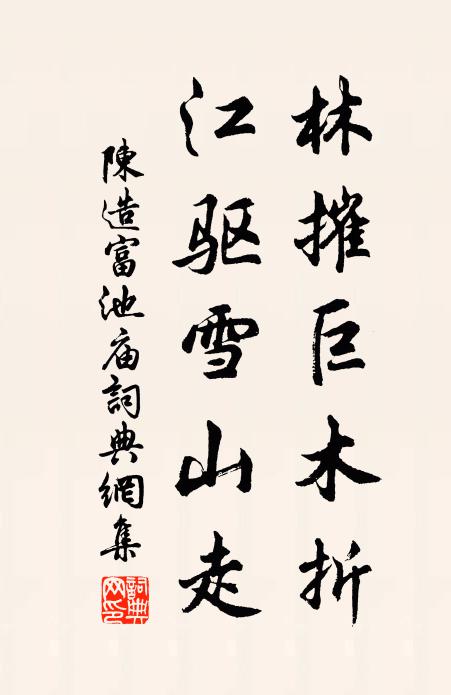 林摧巨木折
江驱雪山走
陳造富池庙詞典網集
詞典網印